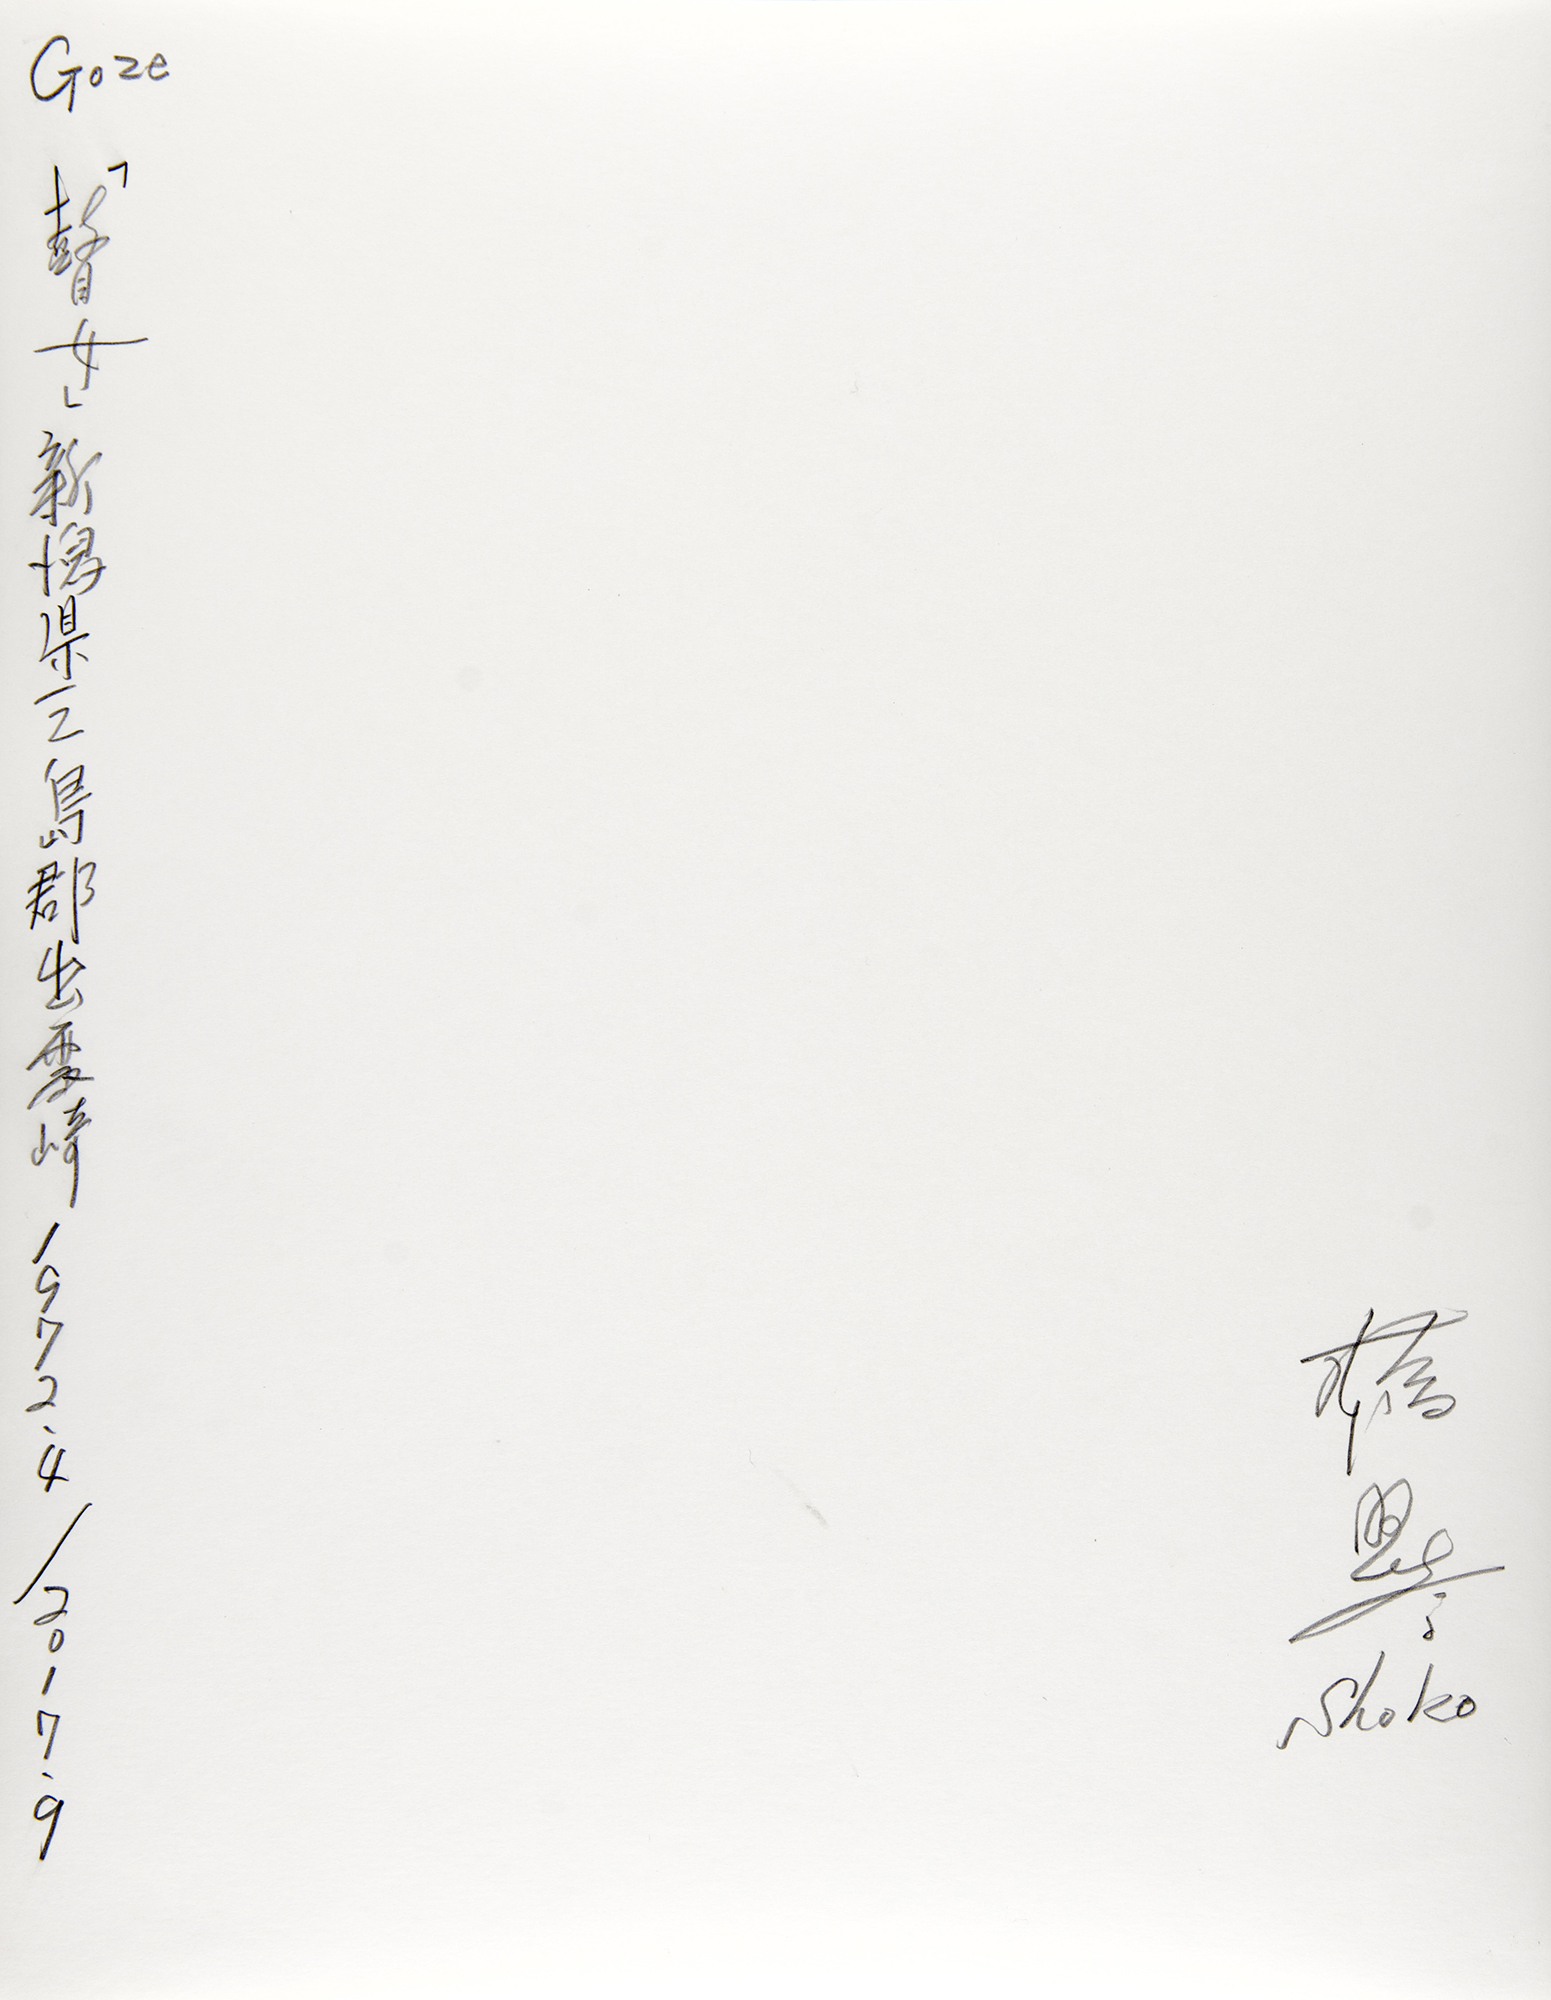 Goze
「瞽女」新潟県三島郡出雲崎 1972.4/2017.9
橋
照嵩
Shoko